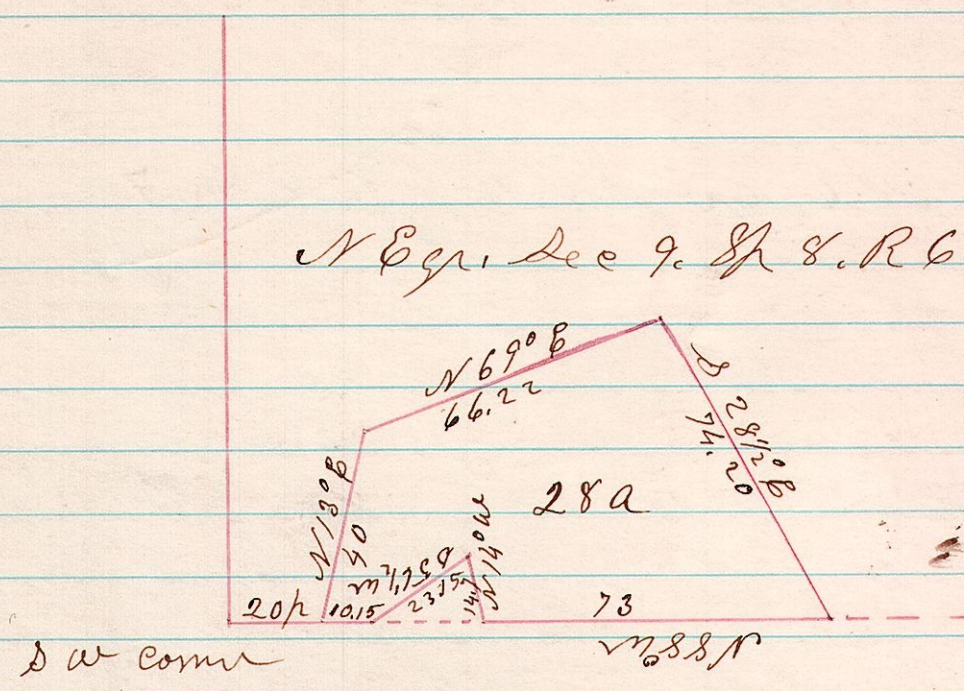 N E qr. Sec 9. Tp 8. R 6
N 69° E
66.22
S 28 1/2° E
74.20
N 13° E
40
28 a
N 14° W
14.7
23.15
20 p
10.15
73
N 88° W
S W corner